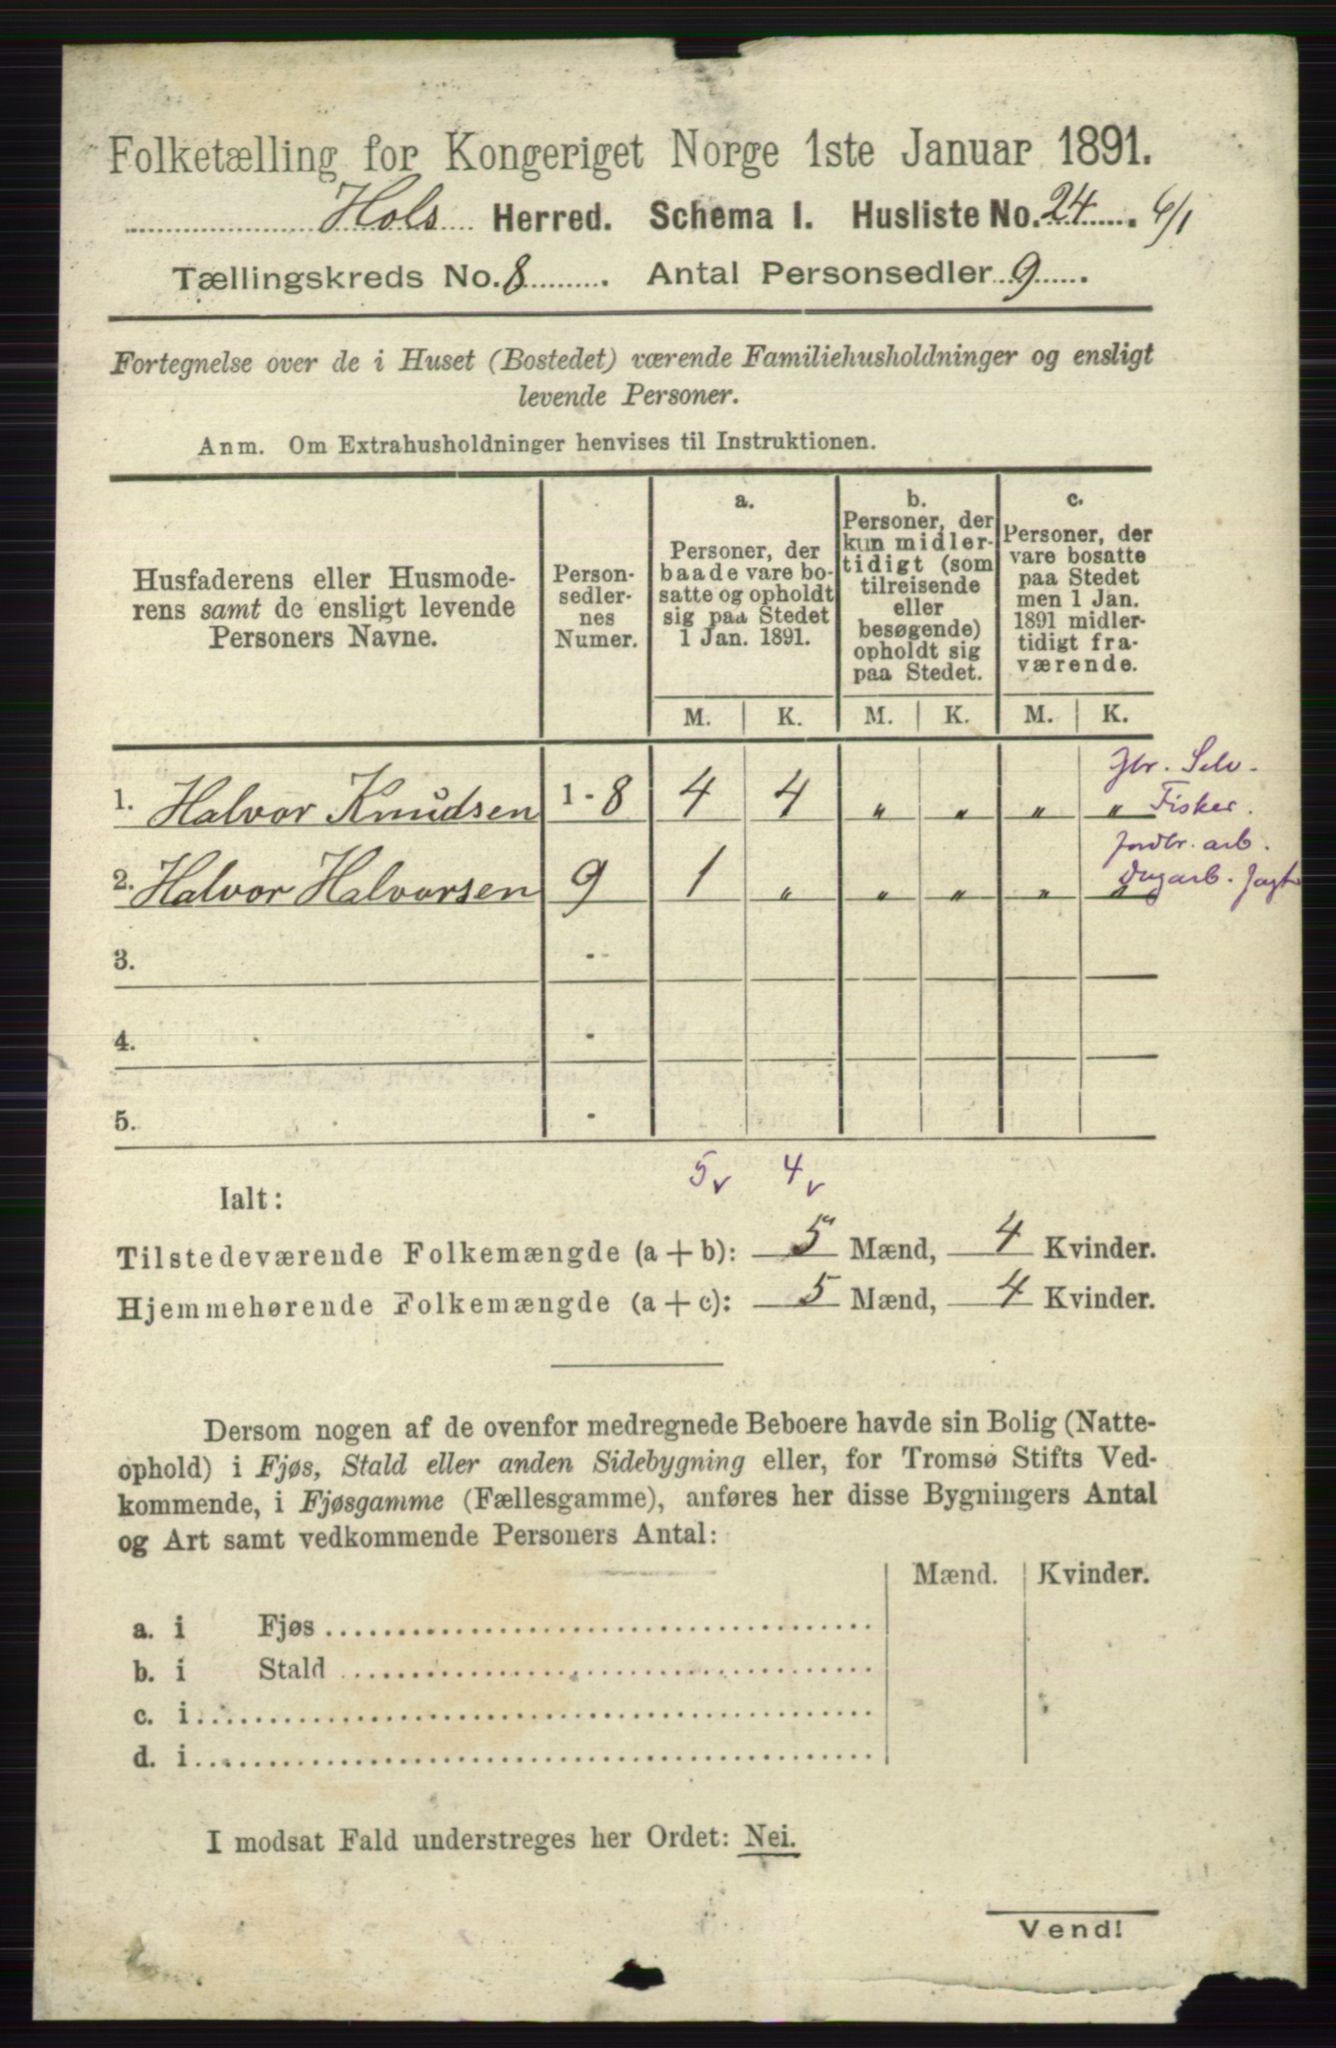 Folketælling for Kongeriget Norge 1ste Januar 1891.
Hols Herred. Schema I. Husliste No. 24. 6/1
Tællingskreds No. 8. Antal Personsedler 9.
Fortegnelse over de i Huset (Bostedet) værende Familiehusholdninger og ensligt
levende Personer.
Anm. Om Extrahusholdninger henvises til Instruktionen.
Husfaderens eller Husmode-
rens samt de ensligt levende
Personers Navne.
Person-
sedler-
nes
Numer.
a.
Personer, der
baade vare bo-
satte og opholdt
sig paa Stedet
1 Jan. 1891.
b.
Personer, der
kun midler-
tidigt (som
tilreisende
eller
besøgende)
opholdt sig
paa Stedet.
c.
Personer, der
vare bosatte
paa Stedet
men 1 Jan.
1891 midler-
tidigt fra-
værende.
M. K. M. K. M. K.
Gbr. Selv.
1. Halvor Knudsen 1-8 4 4 " " " " Fisker.
Jordbr. arb.
2. Halvor Halvorsen 9 1 " " " " " Dagarb. Jagt
3. -
4. -
5. -
5 v 4 v
Ialt:
Tilstedeværende Folkemængde (a + b): 5 Mænd, 4 Kvinder.
Hjemmehørende Folkemængde (a + c): 5 Mænd, 4 Kvinder.
Dersom nogen af de ovenfor medregnede Beboere havde sin Bolig (Natte-
ophold) i Fjøs, Stald eller anden Sidebygning eller, for Tromsø Stifts Ved-
kommende, i Fjøsgamme (Fællesgamme), anføres her disse Bygningers Antal
og Art samt vedkommende Personers Antal:
Mænd. Kvinder.
a. i Fjøs
b. i Stald
c. i
d. i
I modsat Fald understreges her Ordet: Nei.
Vend!